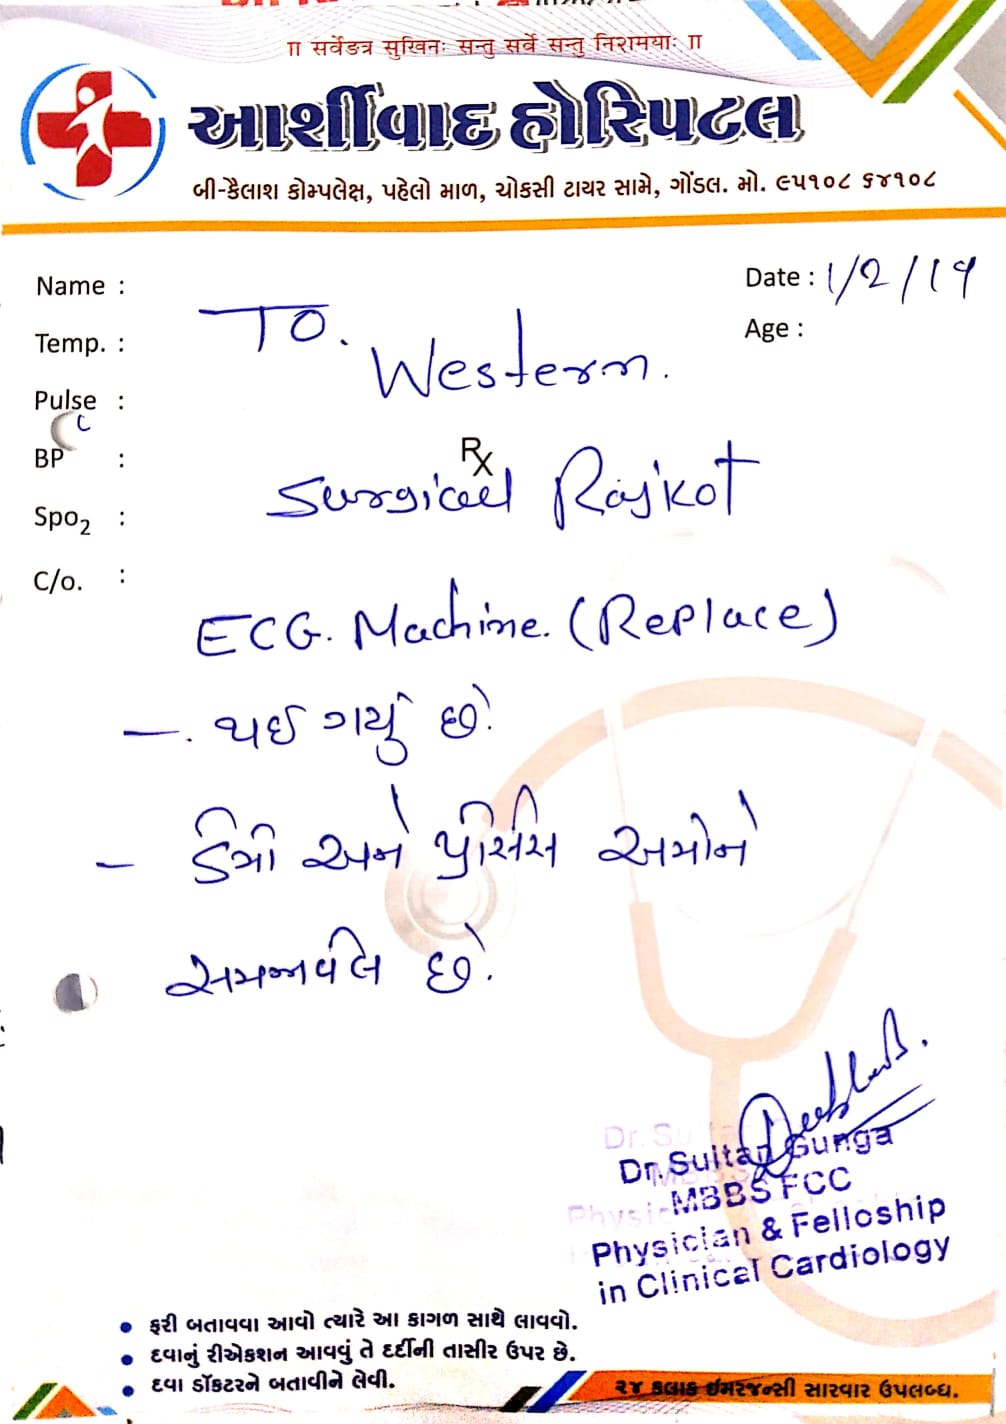 ॥ सर्वेडत्र सुखिनः सन्तु सर्वे सन्तु निरामयाः ॥
આર્શીવાદ હોસ્પિટલ
બી-કૈલાશ કોમ્પલેક્ષ, પહેલો માળ, ચોકસી ટાયર સામે, ગોંડલ. મો. ૯૫૧૦૮ ૬૪૧૦૮
Name :
Date : 1/2/19
Temp. :
Age :
TO.
Western.
Pulse :
BP :
Rx
Surgical Rajkot
Spo2 :
C/o. :
ECG. Machine. (Replace)
—. થઈ ગયું છે.
- ડેમો અને અમોને
સમજાવેલ છે.
Dr. Sultan Gunga
MBBS FCC
Physician & Felloship
in Clinical Cardiology
• ફરી બતાવવા આવો ત્યારે આ કાગળ સાથે લાવવો.
• દવાનું રીએકશન આવવું તે દર્દીની તાસીર ઉપર છે.
• દવા ડૉકટરને બતાવીને લેવી.
૨૪ કલાક ઈમરજન્સી સારવાર ઉપલબ્ધ.